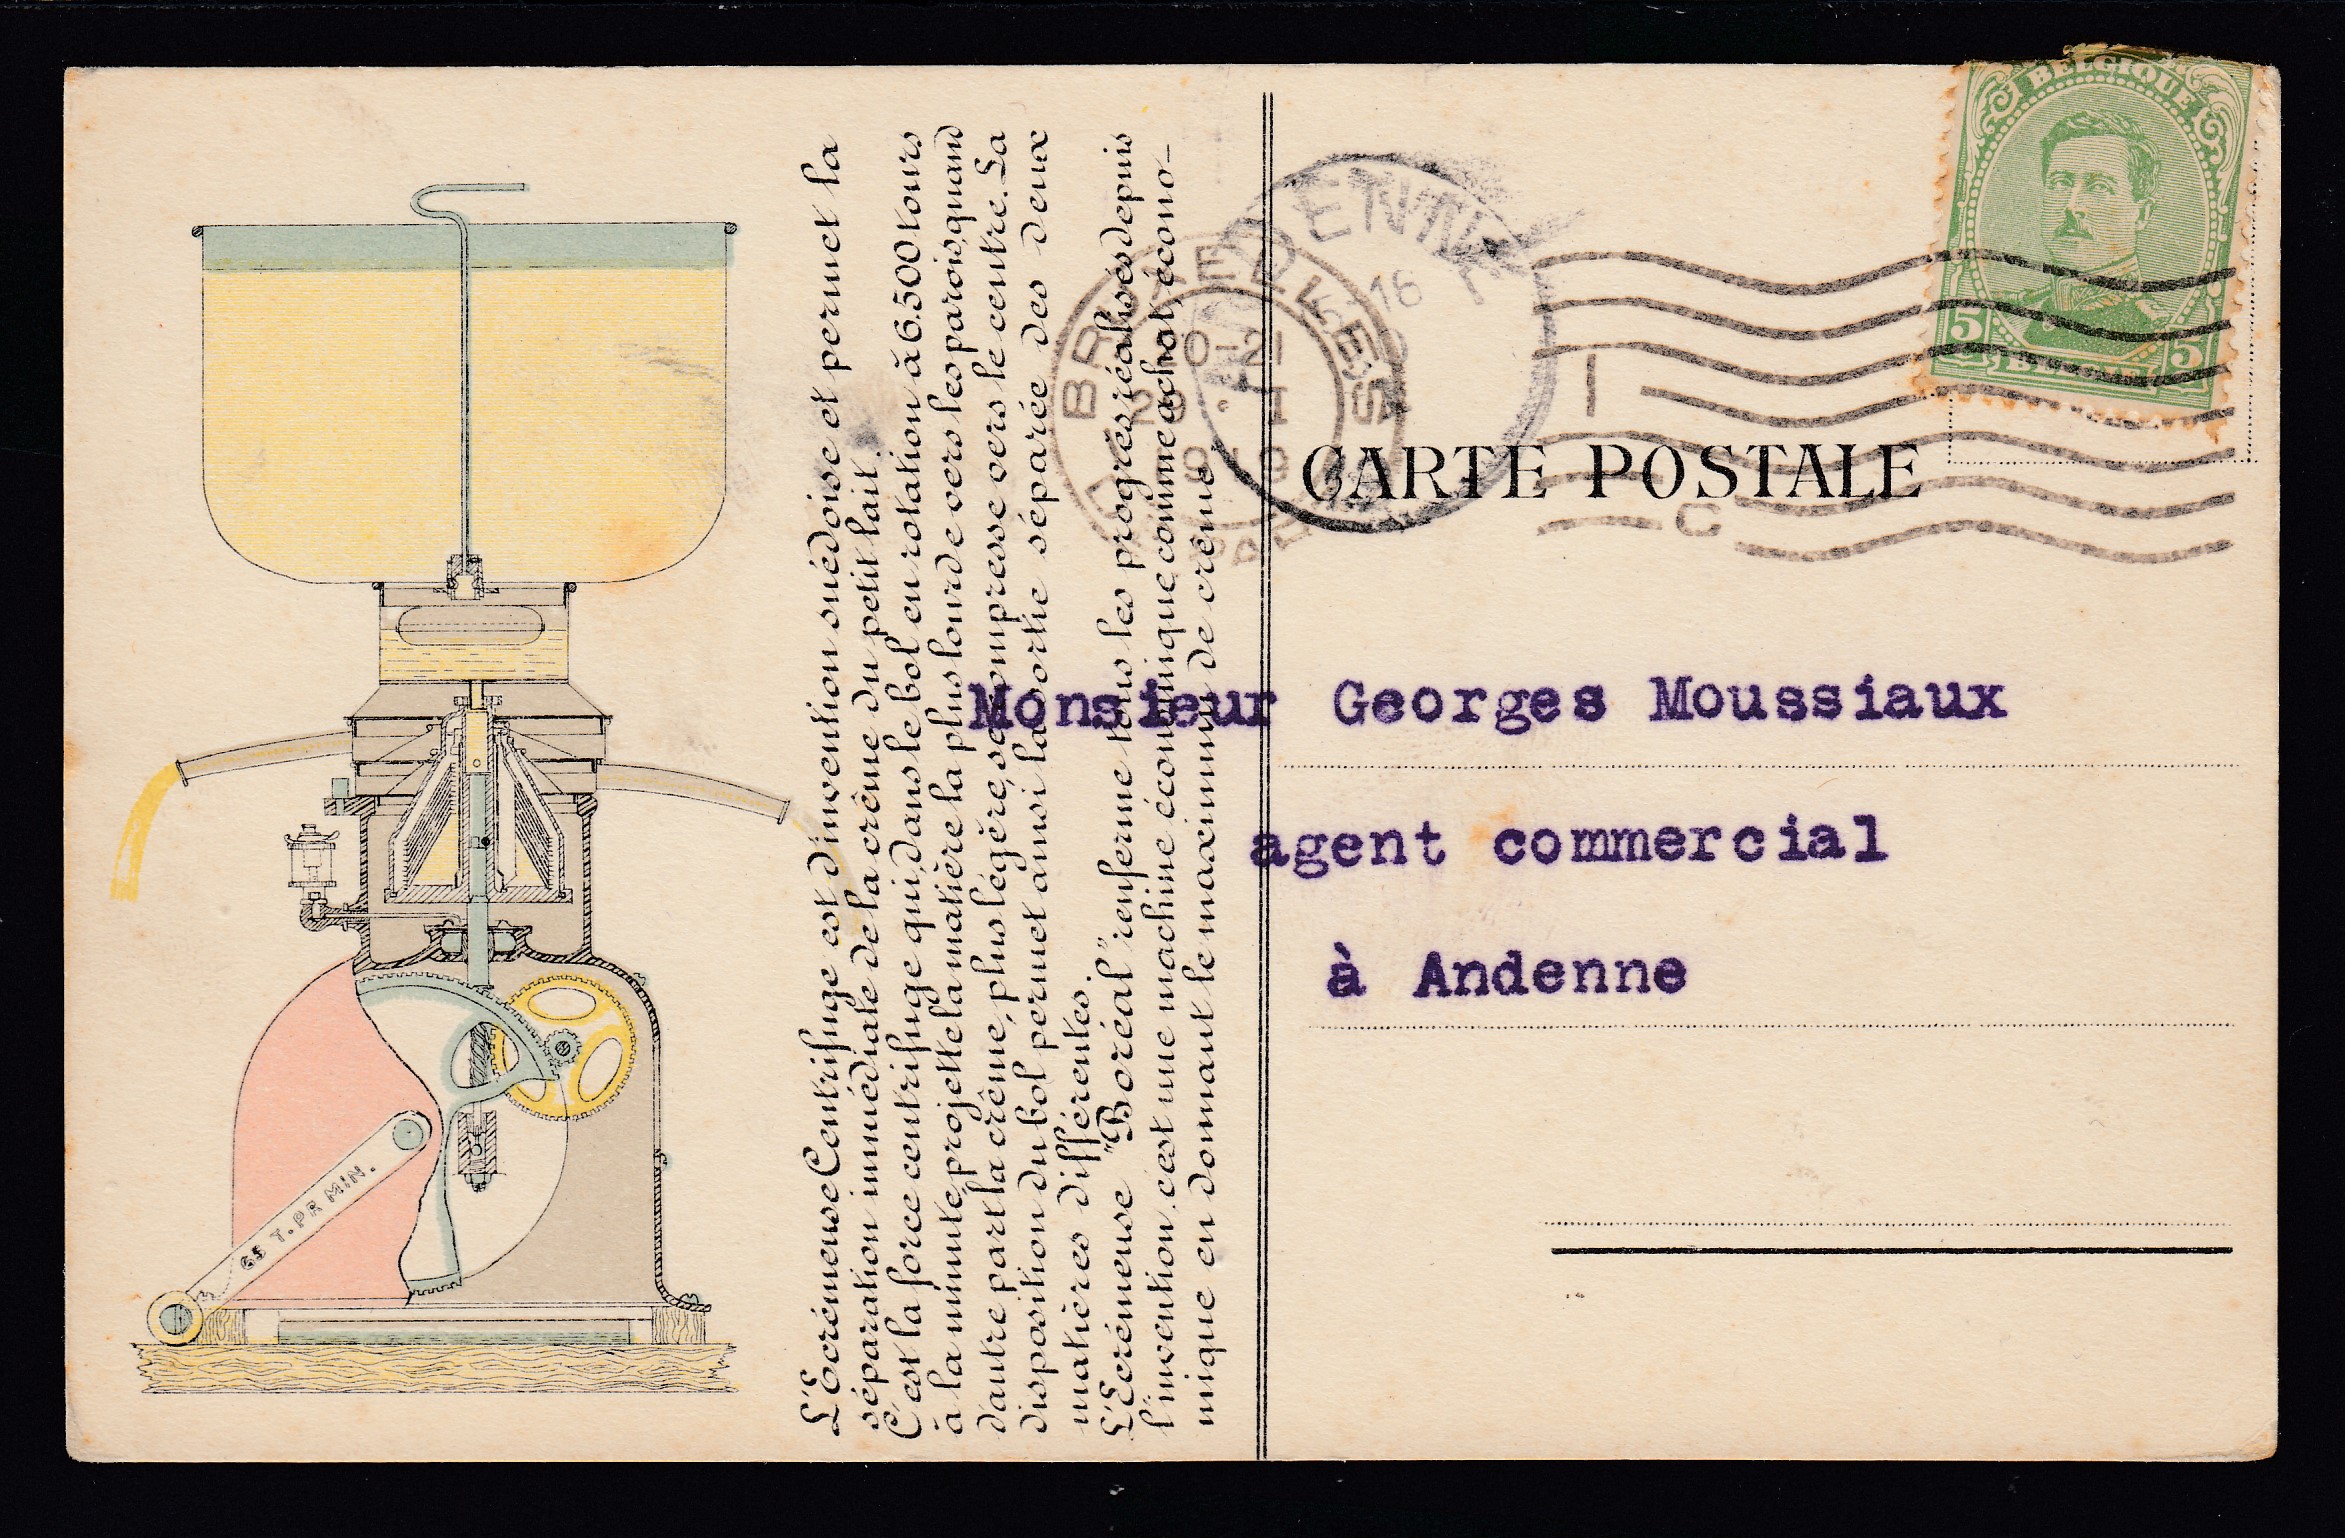 L'Écrémeuse Centrifuge est d'invention suédoise et permet la
séparation immédiate de la crême du petit lait.
C'est la force centrifuge qui, dans le bol en rotation à 6.500 tours
à la minute, projette la matière la plus lourde vers les parois, quand
d'autre part la crême, plus légère, se compresse vers le centre. La
disposition du bol permet ainsi la sortie séparée des deux
matières différentes.
L'Ecrémeuse "Boréal" renferme tous les progrès réalisés depuis
l'invention, c'est une machine économique comme achat, écono-
mique en donnant le maximum de crême
65 T. PR MIN.
BELGIQUE
5 5
BELGIË
BRUXELLES
20-21
I
1919
ANDENNE
16
1
C
CARTE POSTALE
Monsieur Georges Moussiaux
agent commercial
à Andenne